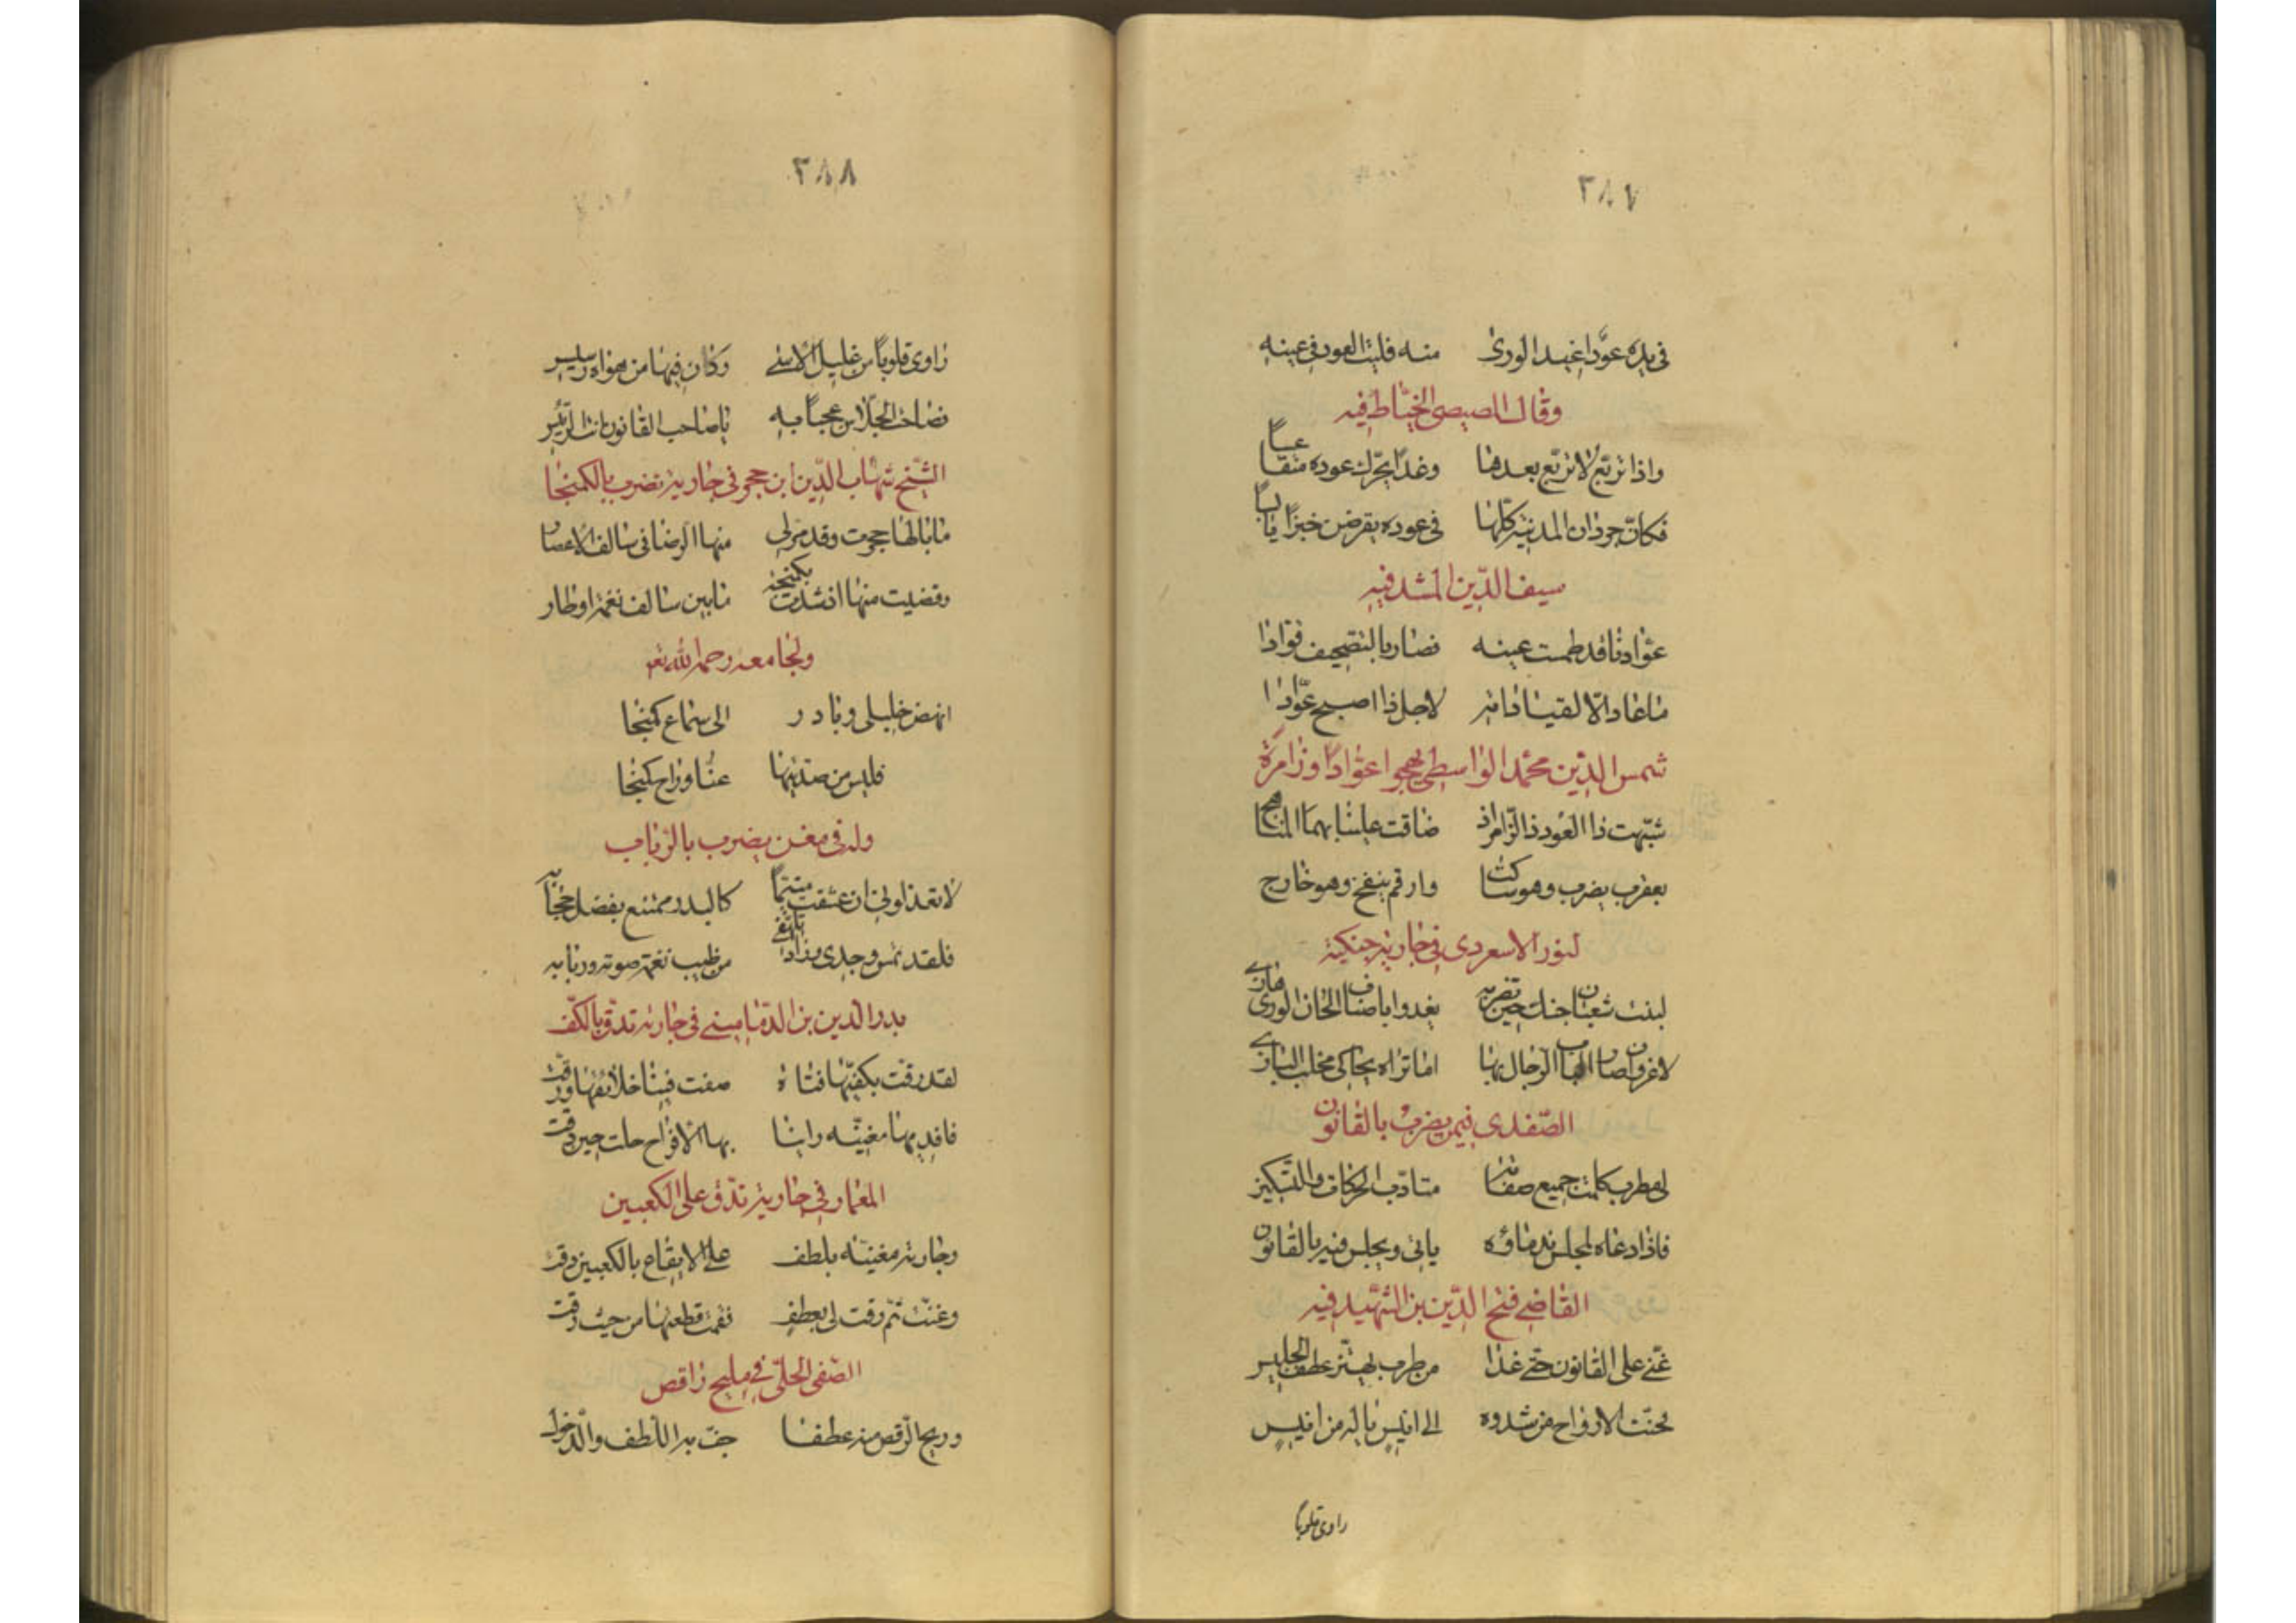 ٣٨٧
في يده عودا غيد الورى منه فليت العود في عينه
وقال المصيصي الخياط فيه
واذا تربع لا تربع بعدها وغدا يحرك عوده متقاعسا
فكان جرذان المدينة كلها في عوده يقرضن خبزا يابسا
سيف الدين المشد فيه
عوادنا قد طمست عينه فصار بالتصحيف قوادا
ما عاد الا لقيادا لاجل ذا اصبح عوادا
شمس الدين محمد الواسطي يهجو عوادا وزامرة
شبهت ذا العود ذا الزامر اذ ضاقت علينا بهما المناهج
بعقرب يضرب وهو ساكت وارقم ينفخ وهو خارج
لنور الاسعردي في جارية جنكية
لبنت شعبان جنك حين تضربه يغدوا باصناف الحان الورى هازي
لا غرو ان صاد الباب الرجال بها اما تراه يحاكي مخلب البازي
الصفدي فيمن يضرب بالقانون
لي مطرب كملت جميع صفاته متادب الحركات والتسكين
فاذا دعاه لمجلس ندماؤه ياتي ويجلس فيه بالقانون
القاضي فتح الدين بن الشهيد فيه
غنى على القانون حتى غدا من طرب يهتز عطف الجليس
فحنت الارواح من شدوه الى انيس ياله من انيس
راوى قلوبا
٣٨٨
راوى قلوبا من غليل الاسى وكان فيها من هواه رسيس
فصاحت الجلاس عجبا به يا صاحب القانون انت الرئيس
الشيخ شهاب الدين ابن حجر في جارية تضرب بالكمنجا
ما بالها هجرت وقد مر لي منها الرضا في سالف الاعصار
وقضيت منها اذ شدت بكمنجة ما بين سالف نغمة اوطار
ولجامعه رحمه الله تع
انهض خليلي وبادر الى سماع كمنجا
فليس من صد تيها عنا وراح كمن جا
وله في مغن يضرب بالرباب
لا تعذلوني ان عشقت متيما كالبدر ممتنع بفضل حجابه
فلقد تمس وجدي وزاد تلهفي من طيب نغمة صوته وربابه
بدر الدين بن الدماميني في جارية تدق بالكف
لقد دقت بكفيها فتاة صفت فينا خلائقها ورقت
فافديها مغنية راينا بها الافراح حلت حين دقت
المعمار في جارية تدق على الكعبين
وجارية مغنية بلطف على الايقاع بالكعبين دقت
وغنت ثم رقت لي بعطف فقمت قطعتها من حيث رقت
الصفي الحلي في مليح راقص
وريح الرقص منه عطفا خف به اللطف والدخول